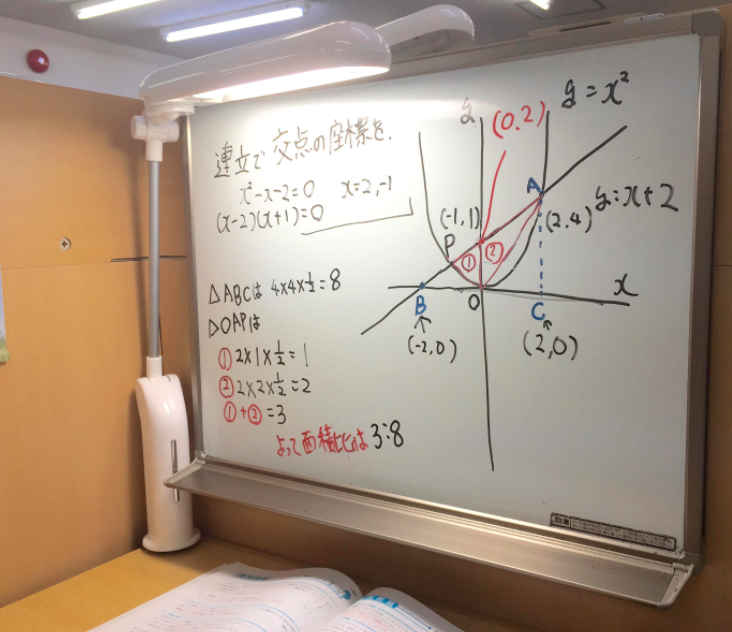 連立で交点の座標を.
x²-x-2=0 x=2,-1
(x-2)(x+1)=0
△ABCは 4×4×½=8
△OAPは
① 2×1×½=1
② 2×2×½=2
①+②=3
よって面積比は 3:8
y
(0.2)
y=x²
A
y=x+2
(-1,1)
(2,4)
P
①
②
x
B
O
C
(-2,0)
(2,0)